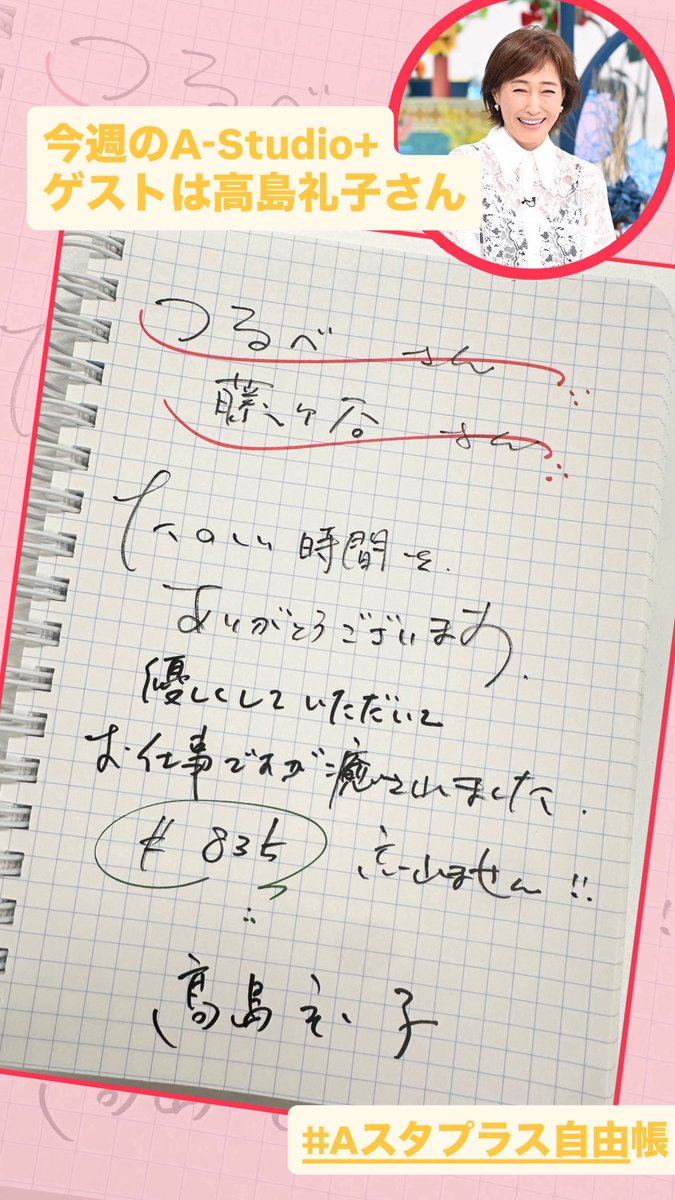 今週のA-Studio+
ゲストは高島礼子さん
つるべ さん
藤ヶ谷 さん
たのしい時間を
ありがとうございます.
優しくしていただいて
お仕事ですが癒されました.
# 835 忘れません!!
高島礼子
#Aスタプラス自由帳